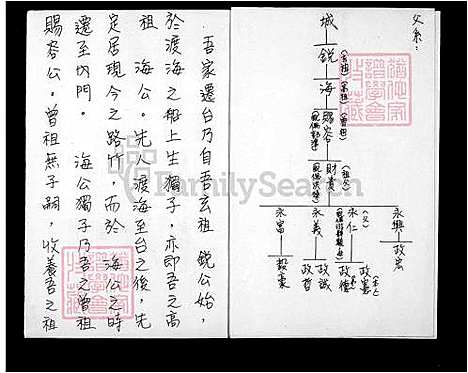 父系：
城
銳（玄祖）
海（高祖）
賜容（曾祖）
財貴（祖父）
永興
永仁（父）
永義
永富
政宏
政憲
政德
政誠
政哲
毅豪
吾家遷台乃自吾玄祖 銳公始，
於渡海之船上生獨子，亦即吾之高
祖 海公。先人渡海至台之後，先
定居現今之路竹，而於 海公之時
遷至內門。 海公獨子乃吾之曾祖
賜容公。曾祖無子嗣，收養吾之祖
FamilySearch